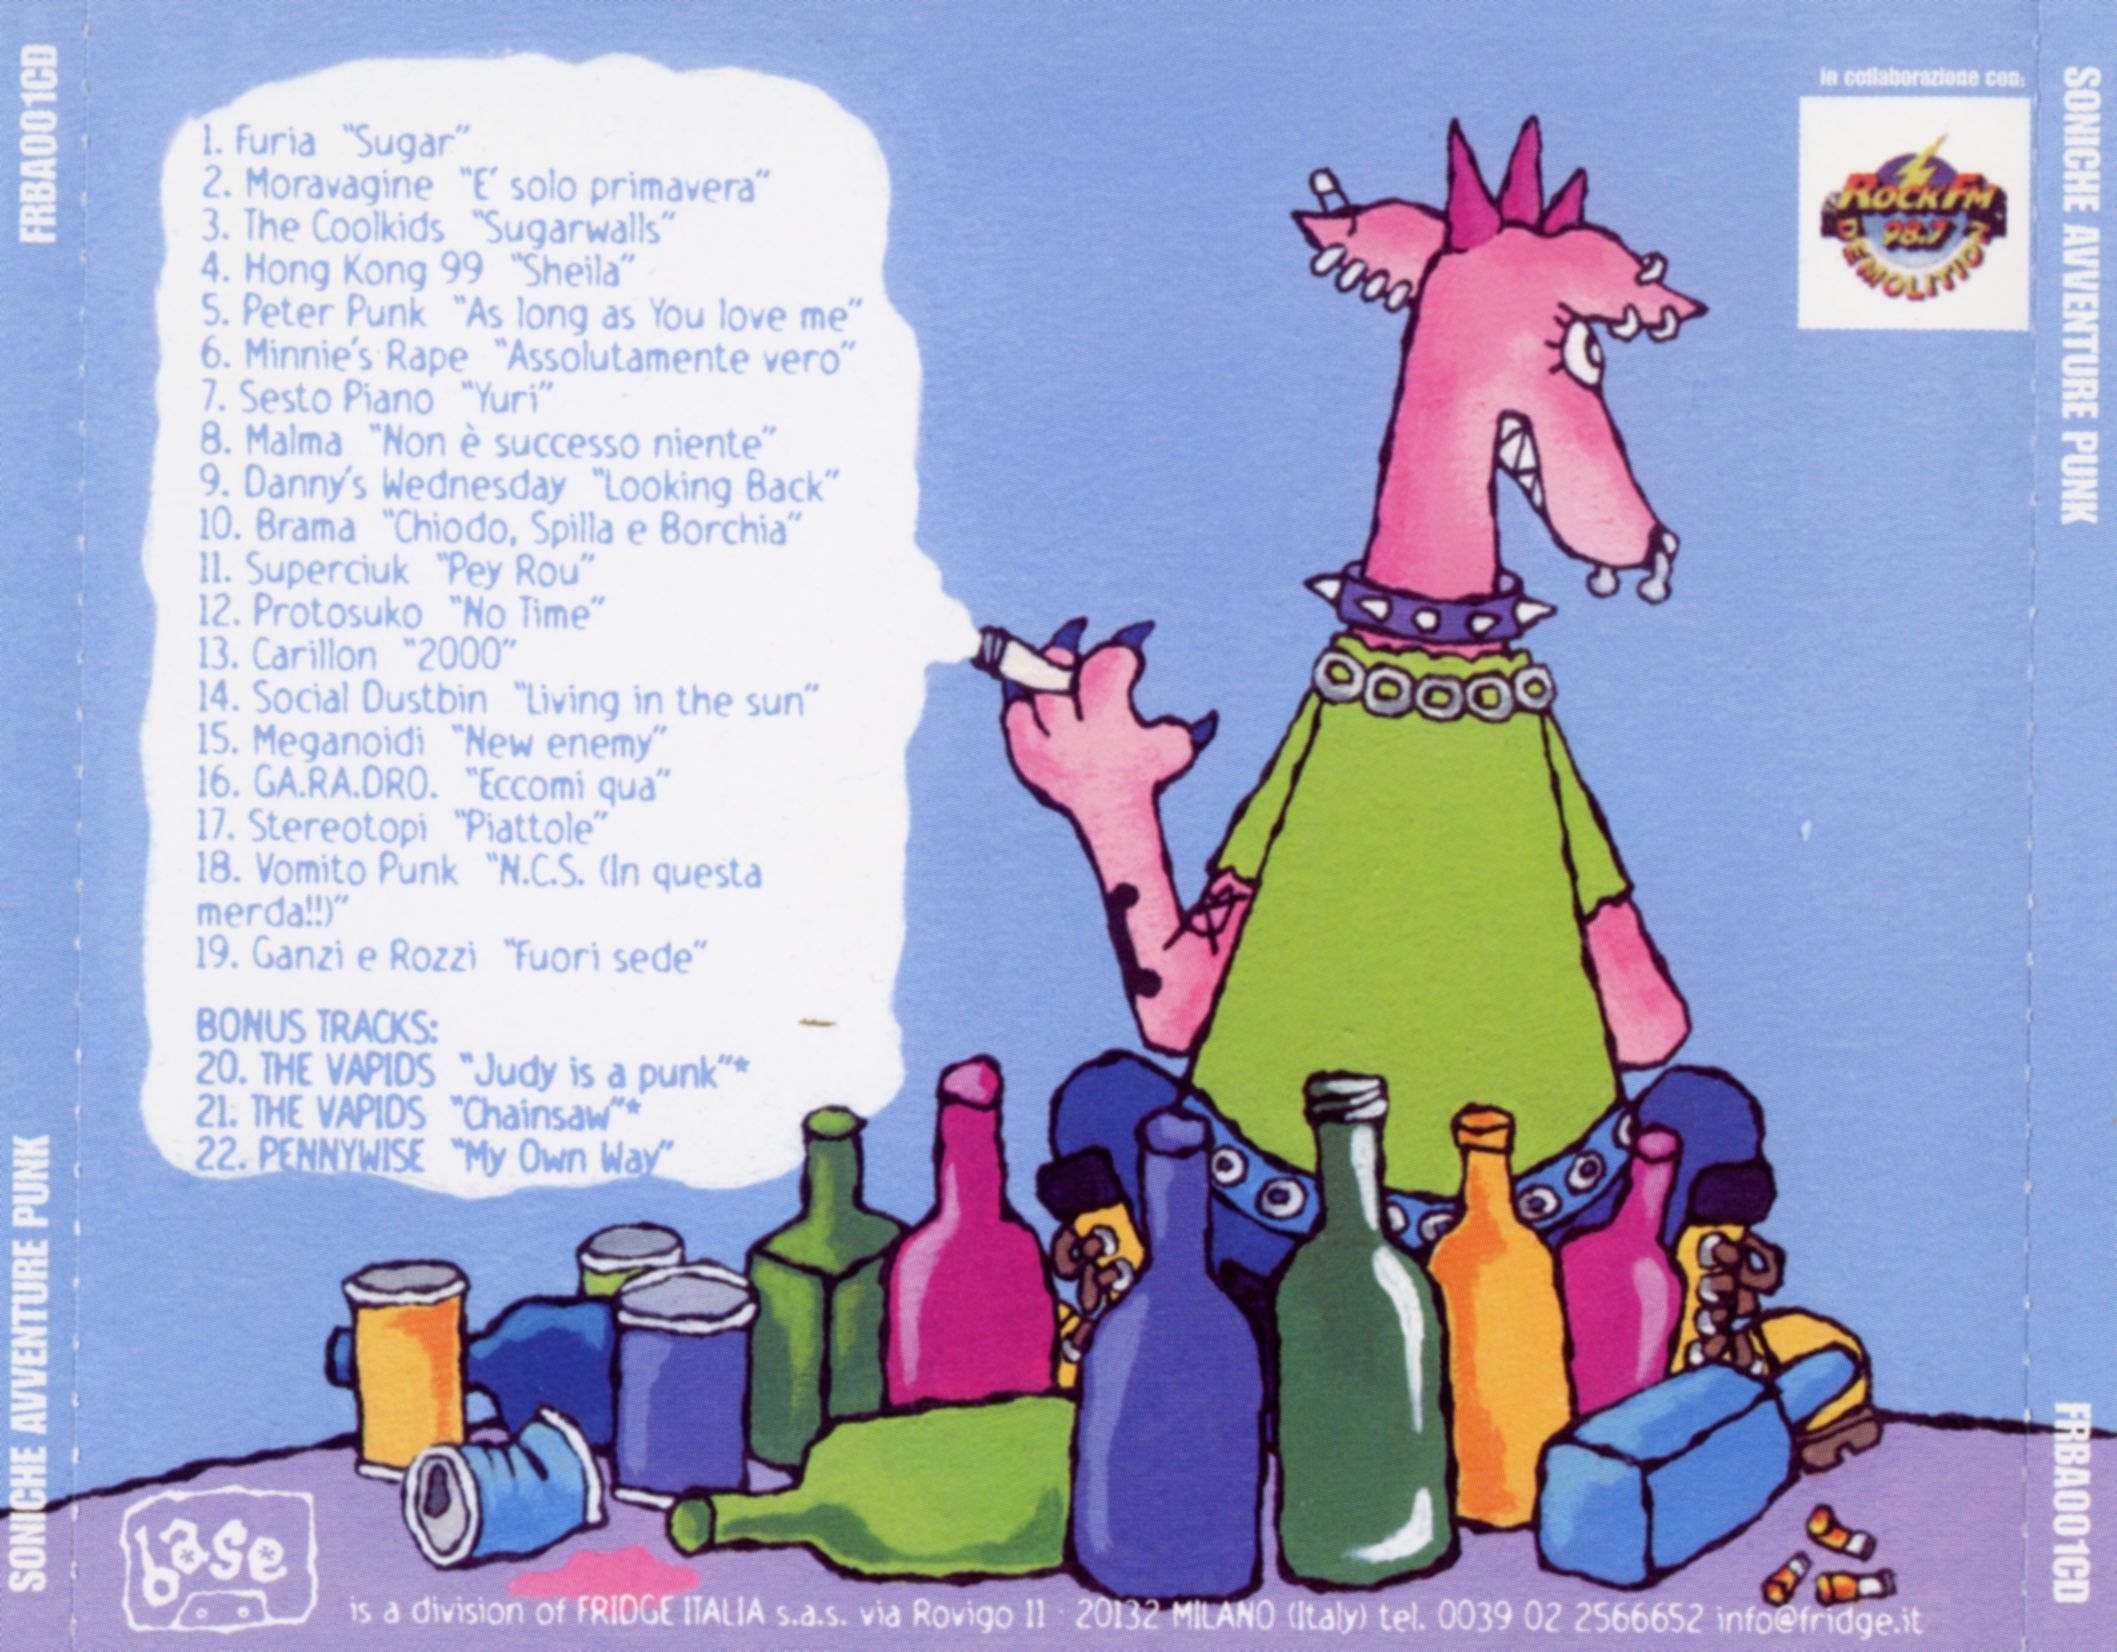 FRBA001CD
SONICHE AVVENTURE PUNK
1. Furia "Sugar"
2. Moravagine "E' solo primavera"
3. The Coolkids "Sugarwalls"
4. Hong Kong 99 "Sheila"
5. Peter Punk "As long as You love me"
6. Minnie's Rape "Assolutamente vero"
7. Sesto Piano "Yuri"
8. Malma "Non è successo niente"
9. Danny's Wednesday "Looking Back"
10. Brama "Chiodo, Spilla e Borchia"
11. Superciuk "Pey Rou"
12. Protosuko "No Time"
13. Carillon "2000"
14. Social Dustbin "Living in the sun"
15. Meganoidi "New enemy"
16. GA.RA.DRO. "Eccomi qua"
17. Stereotopi "Piattole"
18. Vomito Punk "N.C.S. (In questa
merda!!)"
19. Ganzi e Rozzi "Fuori sede"
BONUS TRACKS:
20. THE VAPIDS "Judy is a punk"*
21. THE VAPIDS "Chainsaw"*
22. PENNYWISE "My Own Way"
in collaborazione con:
ROCK FM
98.7
DEMOLITION
SONICHE AVVENTURE PUNK
FRBA001CD
base
is a division of FRIDGE ITALIA s.a.s. via Rovigo 11 · 20132 MILANO (Italy) tel. 0039 02 2566652 info@fridge.it